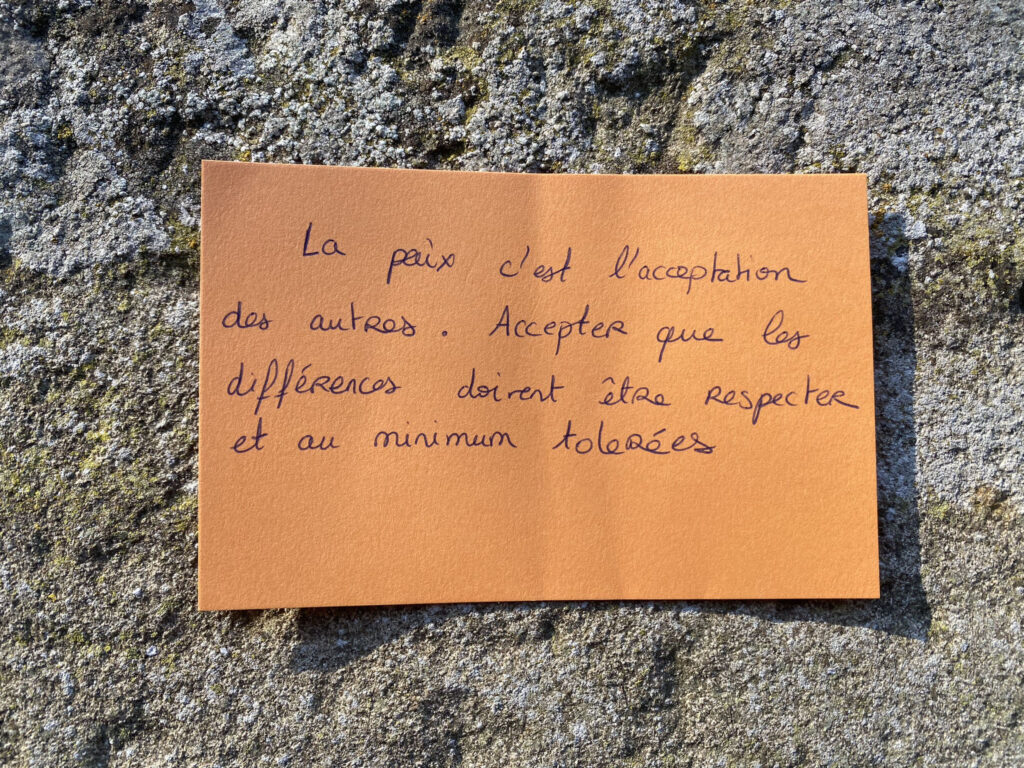 La paix c'est l'acceptation
des autres. Accepter que les
différences doivent être respecter
et au minimum tolerées